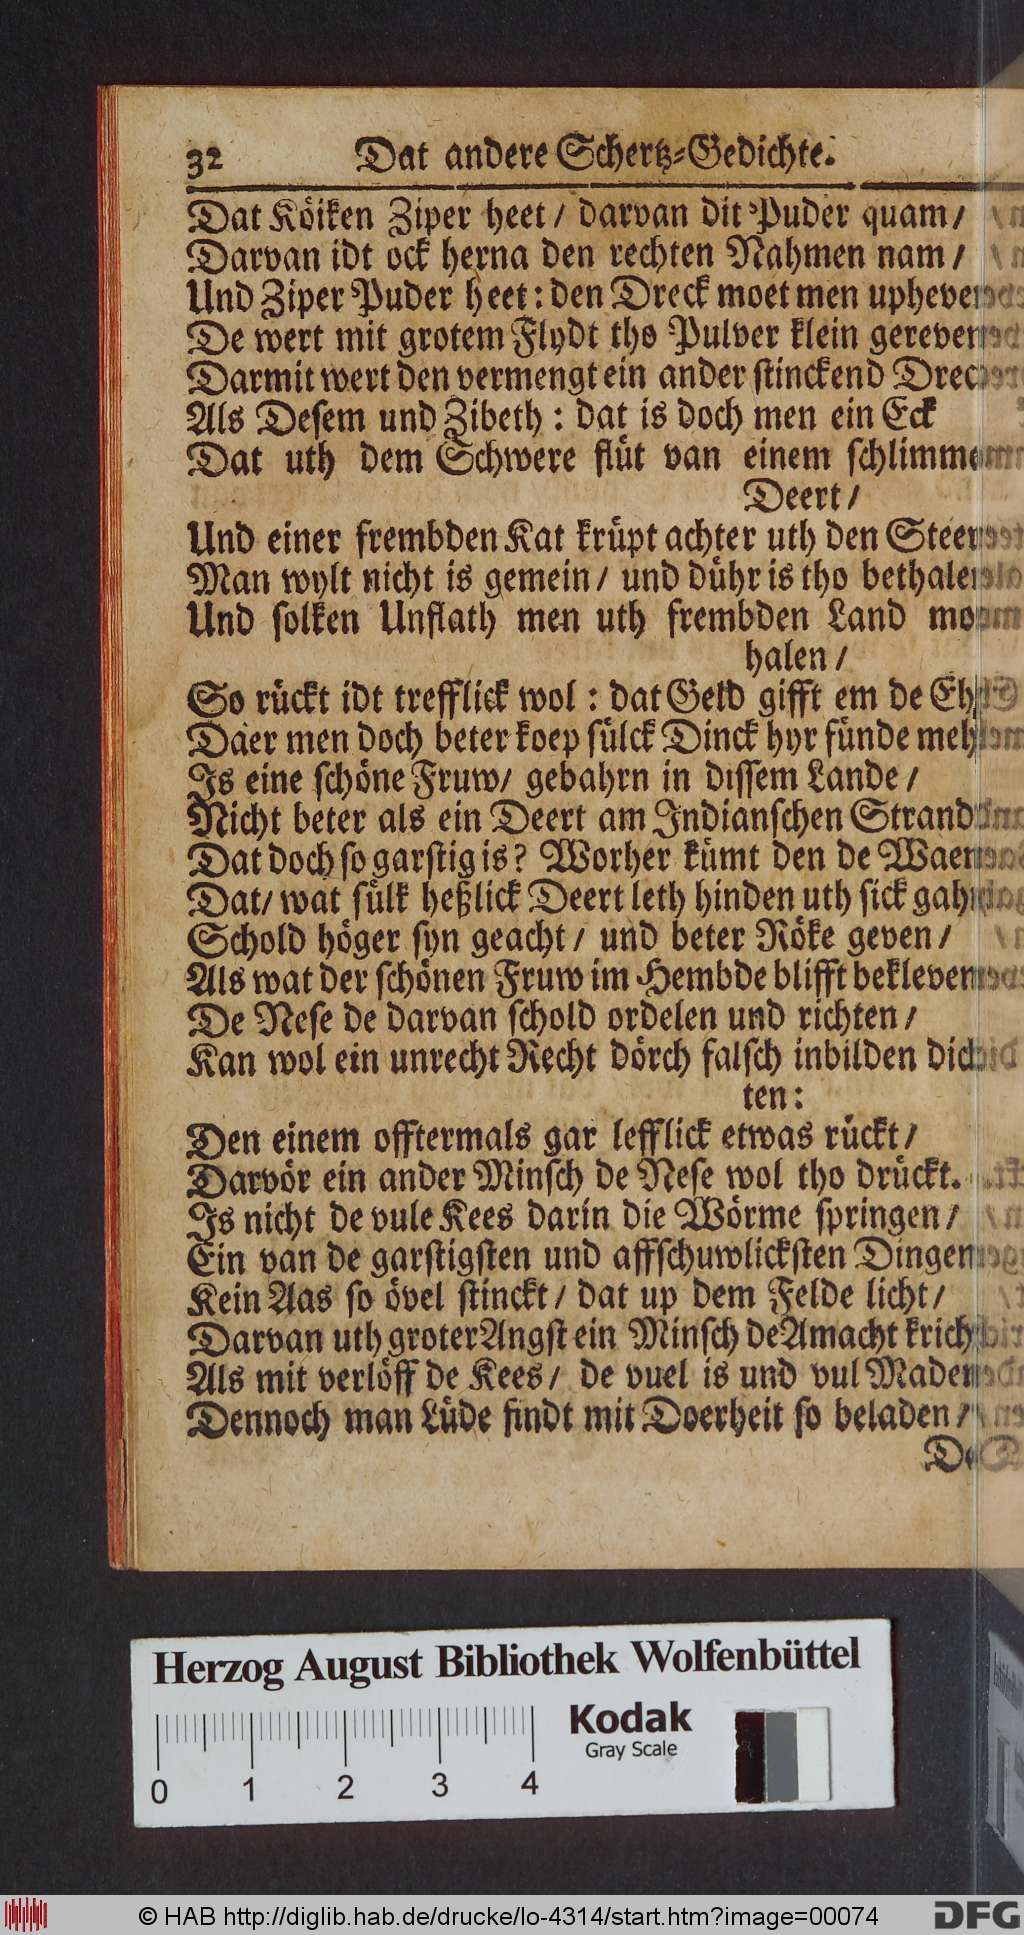 32 Dat andere Schertz-Gedichte.
Dat Köiken Ziper heet / darvan dit Puder quam /
Darvan idt ock herna den rechten Nahmen nam /
Und Ziper Puder heet : den Dreck moet men upheven
De wert mit grotem Flydt tho Pulver klein gereven
Darmit wert den vermengt ein ander stinckend Dreck
Als Desem und Zibeth : dat is doch men ein Eck
Dat uth dem Schwere flüt van einem schlimmen
Deert /
Und einer frembden Kat krüpt achter uth den Steert
Man wylt nicht is gemein / und dühr is tho bethalen
Und solken Unflath men uth frembden Land mo
halen /
So rückt idt trefflick wol : dat Geld gifft em de Eh
Daer men doch beter koep sülck Dinck hyr fünde meh
Is eine schöne Fruw / gebahrn in dissem Lande /
Nicht beter als ein Deert am Indianschen Strand
Dat doch so garstig is? Worher kümt den de Waen
Dat / wat sülk heßlick Deert leth hinden uth sick gahn
Schold höger syn geacht / und beter Röke geven /
Als wat der schönen Fruw im Hembde blifft bekleven
De Nese de darvan schold ordelen und richten /
Kan wol ein unrecht Recht dörch falsch inbilden dich
ten :
Den einem offtermals gar lefflick etwas rückt /
Darvör ein ander Minsch de Nese wol tho drückt.
Is nicht de vule Kees darin die Wörme springen /
Ein van de garstigsten und affschuwlicksten Dingen
Kein Aas so övel stinckt / dat up dem Felde licht /
Darvan uth groter Angst ein Minsch de Amacht kricht
Als mit verlöff de Kees / de vuel is und vul Maden
Dennoch man Lüde findt mit Doerheit so beladen /
De
Herzog August Bibliothek Wolfenbüttel
Kodak
Gray Scale
0 1 2 3 4
© HAB http://diglib.hab.de/drucke/lo-4314/start.htm?image=00074
DFG